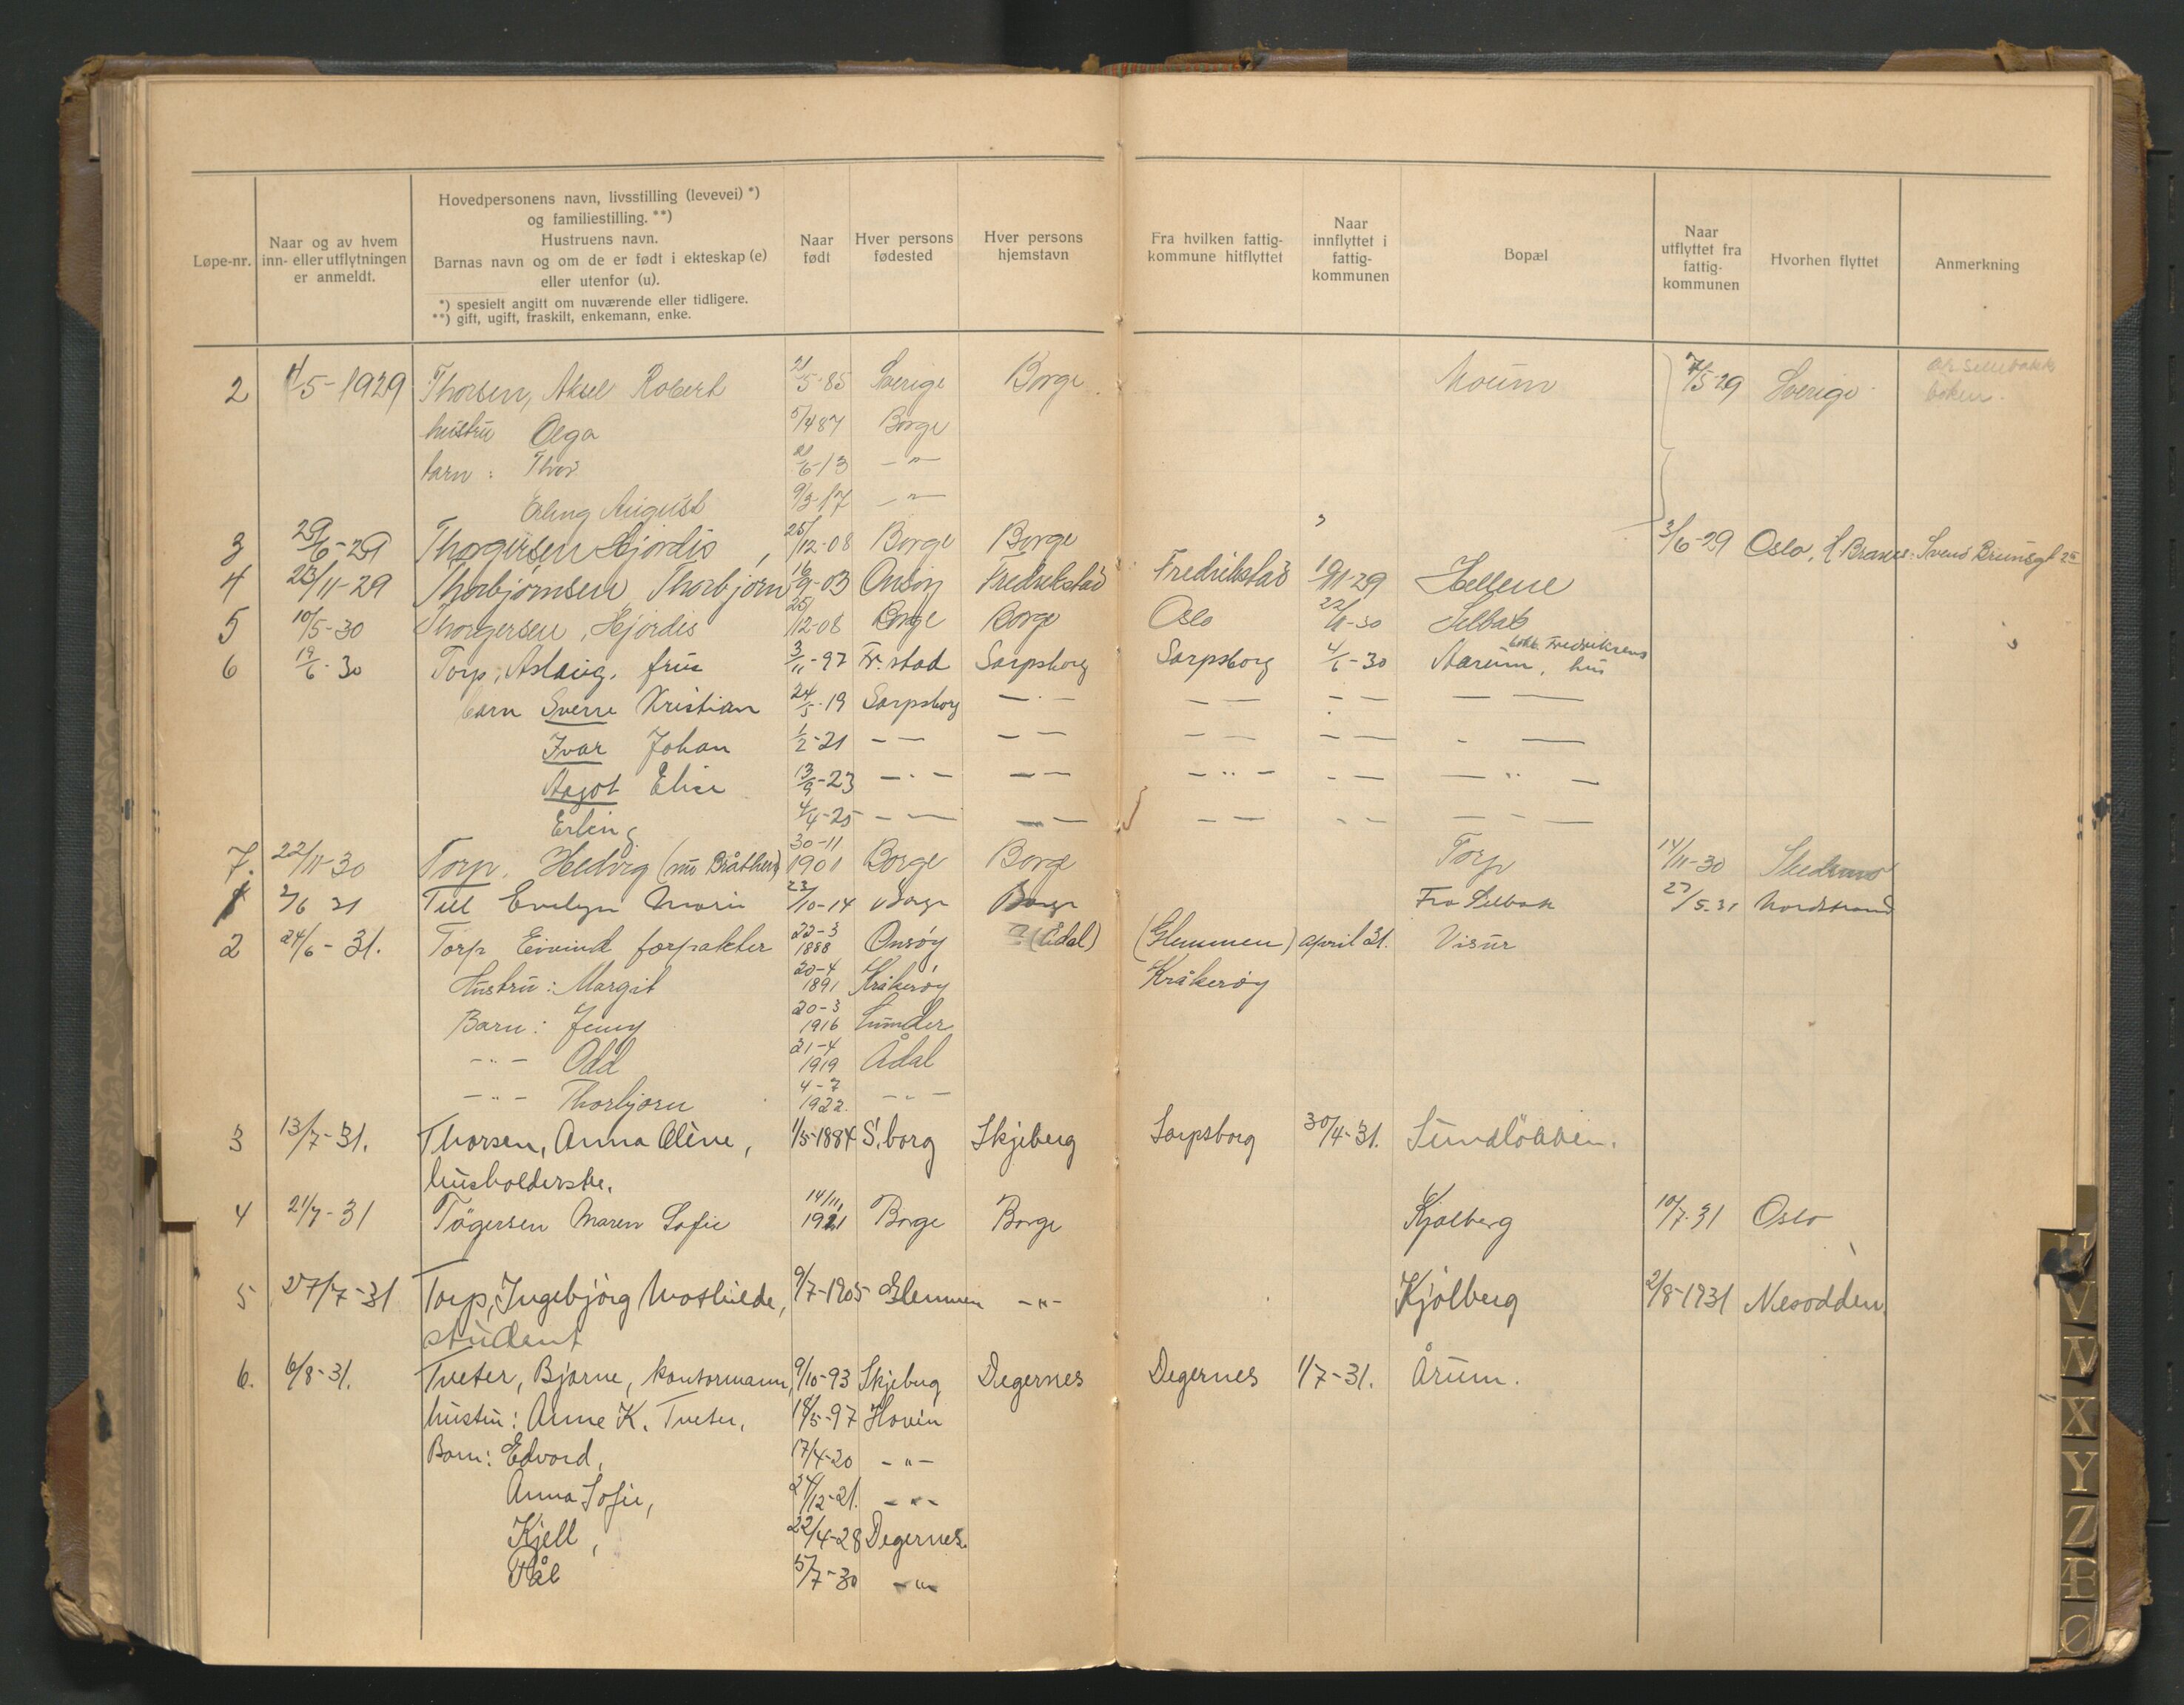 Løpe-nr. Naar og av hvem inn- eller utflytningen er anmeldt. Hovedpersonens navn, livsstilling (levevei) *) og familiestilling. **) Hustruens navn. Barnas navn og om de er født i ekteskap (e) eller utenfor (u). *) spesielt angitt om nuværende eller tidligere. **) gift, ugift, fraskilt, enkemann, enke. Naar født Hver persons fødested Hver persons hjemstavn Fra hvilken fattig-kommune hitflyttet Naar innflyttet i fattig-kommunen Bopæl Naar utflyttet fra fattig-kommunen Hvorhen flyttet Anmerkning
2 4/5-1929 Thorsen, Aksel Robert 21/5-85 Sverige Borge Moum 7/5-29 Sverige boken.
hustru Olga 5/4 87 Borge
barn : Thor 21/6-13 - " -
Erling August 9/3-17 - " -
3 29/6-29 Thorgersen Hjørdis, 25/12-08 Borge Borge 3/6-29 Oslo, Svend Brunsgt
4 23/11-29 Thorbjørnsen Thorbjørn 16/9-03 Onsøy Fredrikstad Fredrikstad 10/11-29 Hellene
5 10/5-30 Thorgersen, Hjørdis 25/12-08 Borge Borge Oslo Selbak
6 19/6-30 Torp, Aslaug, frue 3/11-97 Fr.stad Sarpsborg Sarpsborg 4/6-30 Aarum, Fredriksens hus
barn Sverre Kristian 24/5-19 Sarpsborg — - — — — - — — —
Ivar Johan 1/2-21 — — — — — — - — - —
Aagot Elise 13/9-23 — - — — — - " - - — — " —
Erling 4/4-25 — — — — — — - - — - —
7. 22/11-30 Torp, Hedvig (nu Bråthen) 30-11 1901 Borge Borge Torp 14/11-30 Skedsmo
1 2/6 31 Till Evelyn Marie 23/10-14 Borge Borge Fra Selbak 27/5-31 Nordstrand
2 24/6-31. Torp Eivind forpakter 22-3 1888 Onsøy ? (Ådal) (Glemmen) april 31. Visur
Hustru: Margit 20-4 1891 Kråkerøy Kråkerøy
Barn: Jenny 20-3 1916 Lunder
- " - Odd 21-4 1919 Ådal
- " - Thorbjørn 4-7 1922. - " -
3 13/7-31. Thorsen, Anna Oline, 1/5-1884 S.borg Skjeberg Sarpsborg 30/4-31. Sundløkken.
husholderske.
4 21/7-31 Tøgersen Maren Sofie 14/11 1921 Borge Borge Kjølberg 10/7-31 Oslo
5 27/7-31 Torp, Ingebjørg Mathilde, 9/7-1905 Glemmen - " - Kjølberg 2/8-1931 Nesodden
student
6. 6/8-31. Tveter, Bjarne, kontormann, 9/10-93 Skjeberg Degernes Degernes 1/7-31. Årum.
hustru: Anne K. Tveter, 18/5-97 Hovin
Barn: Edvard, 17/4-20 - " -
Anna Sofie, 24/12-21. - " -
Kjell, 22/4-28 Degernes.
Pål 5/7-30 - " -
V
W
X
Y
Z
Æ
Ø